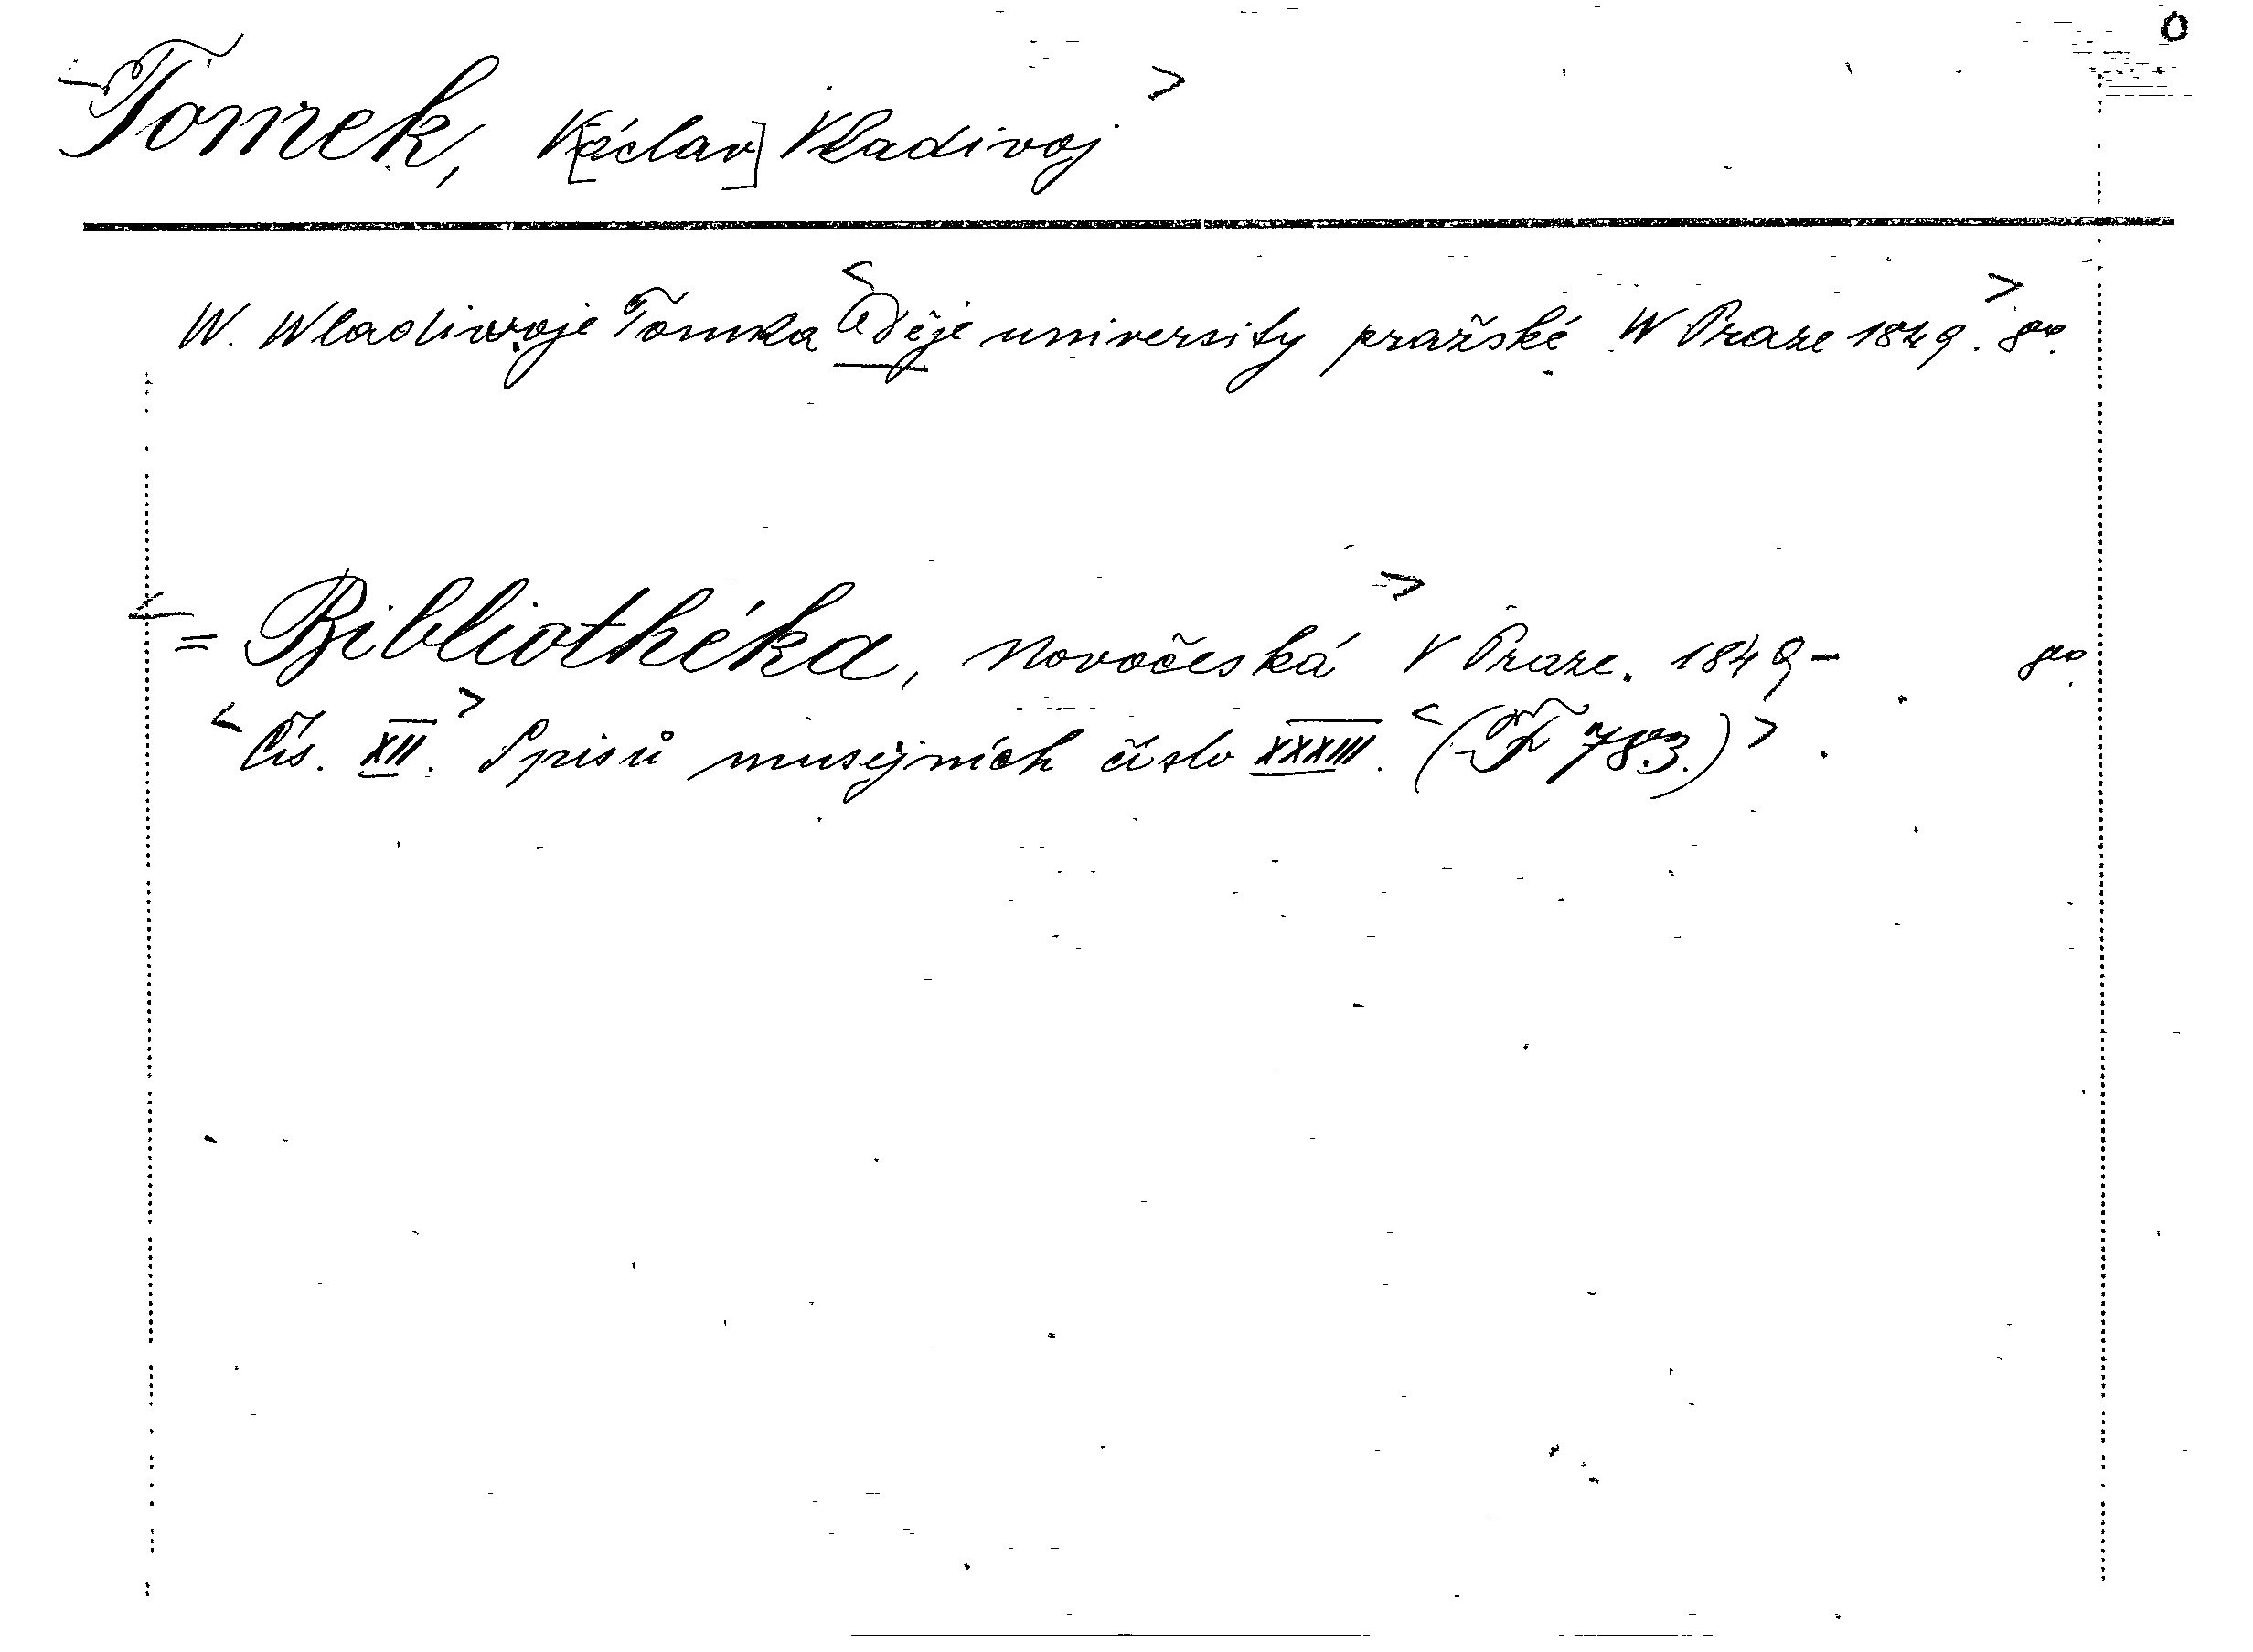 Tomek, V[áclav] Vladivoj
W. Wladiwoje Tomka Děje university pražské W Praze 1849. 8o.
= Bibliothéka, novočeská V Praze. 1849- 8o.
Čís. XII. Spisů musejních číslo XXXIII. (F 783.)